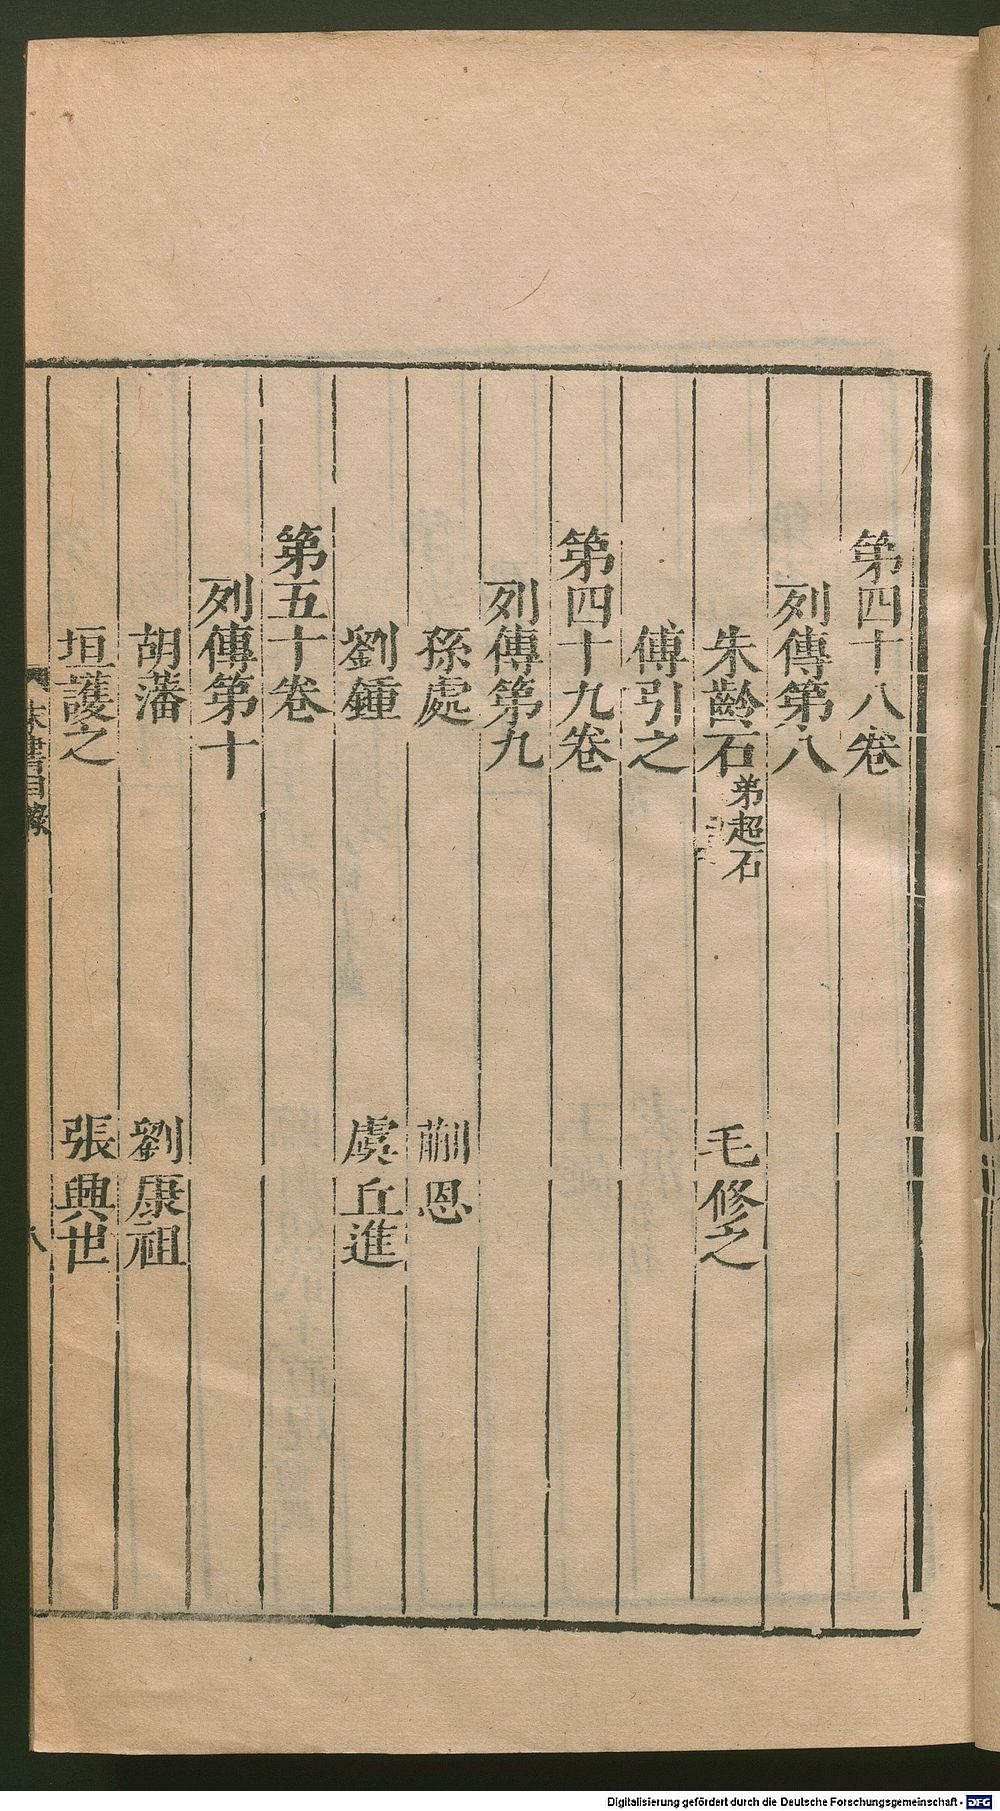 第四十八卷
列傳第八
朱齡石 弟超石 毛修之
傅引之
第四十九卷
列傳第九
孫處 蒯恩
劉鍾 虞丘進
第五十卷
列傳第十
胡藩 劉康祖
垣護之 張興世
宋書目錄 八
Digitalisierung gefördert durch die Deutsche Forschungsgemeinschaft - DFG